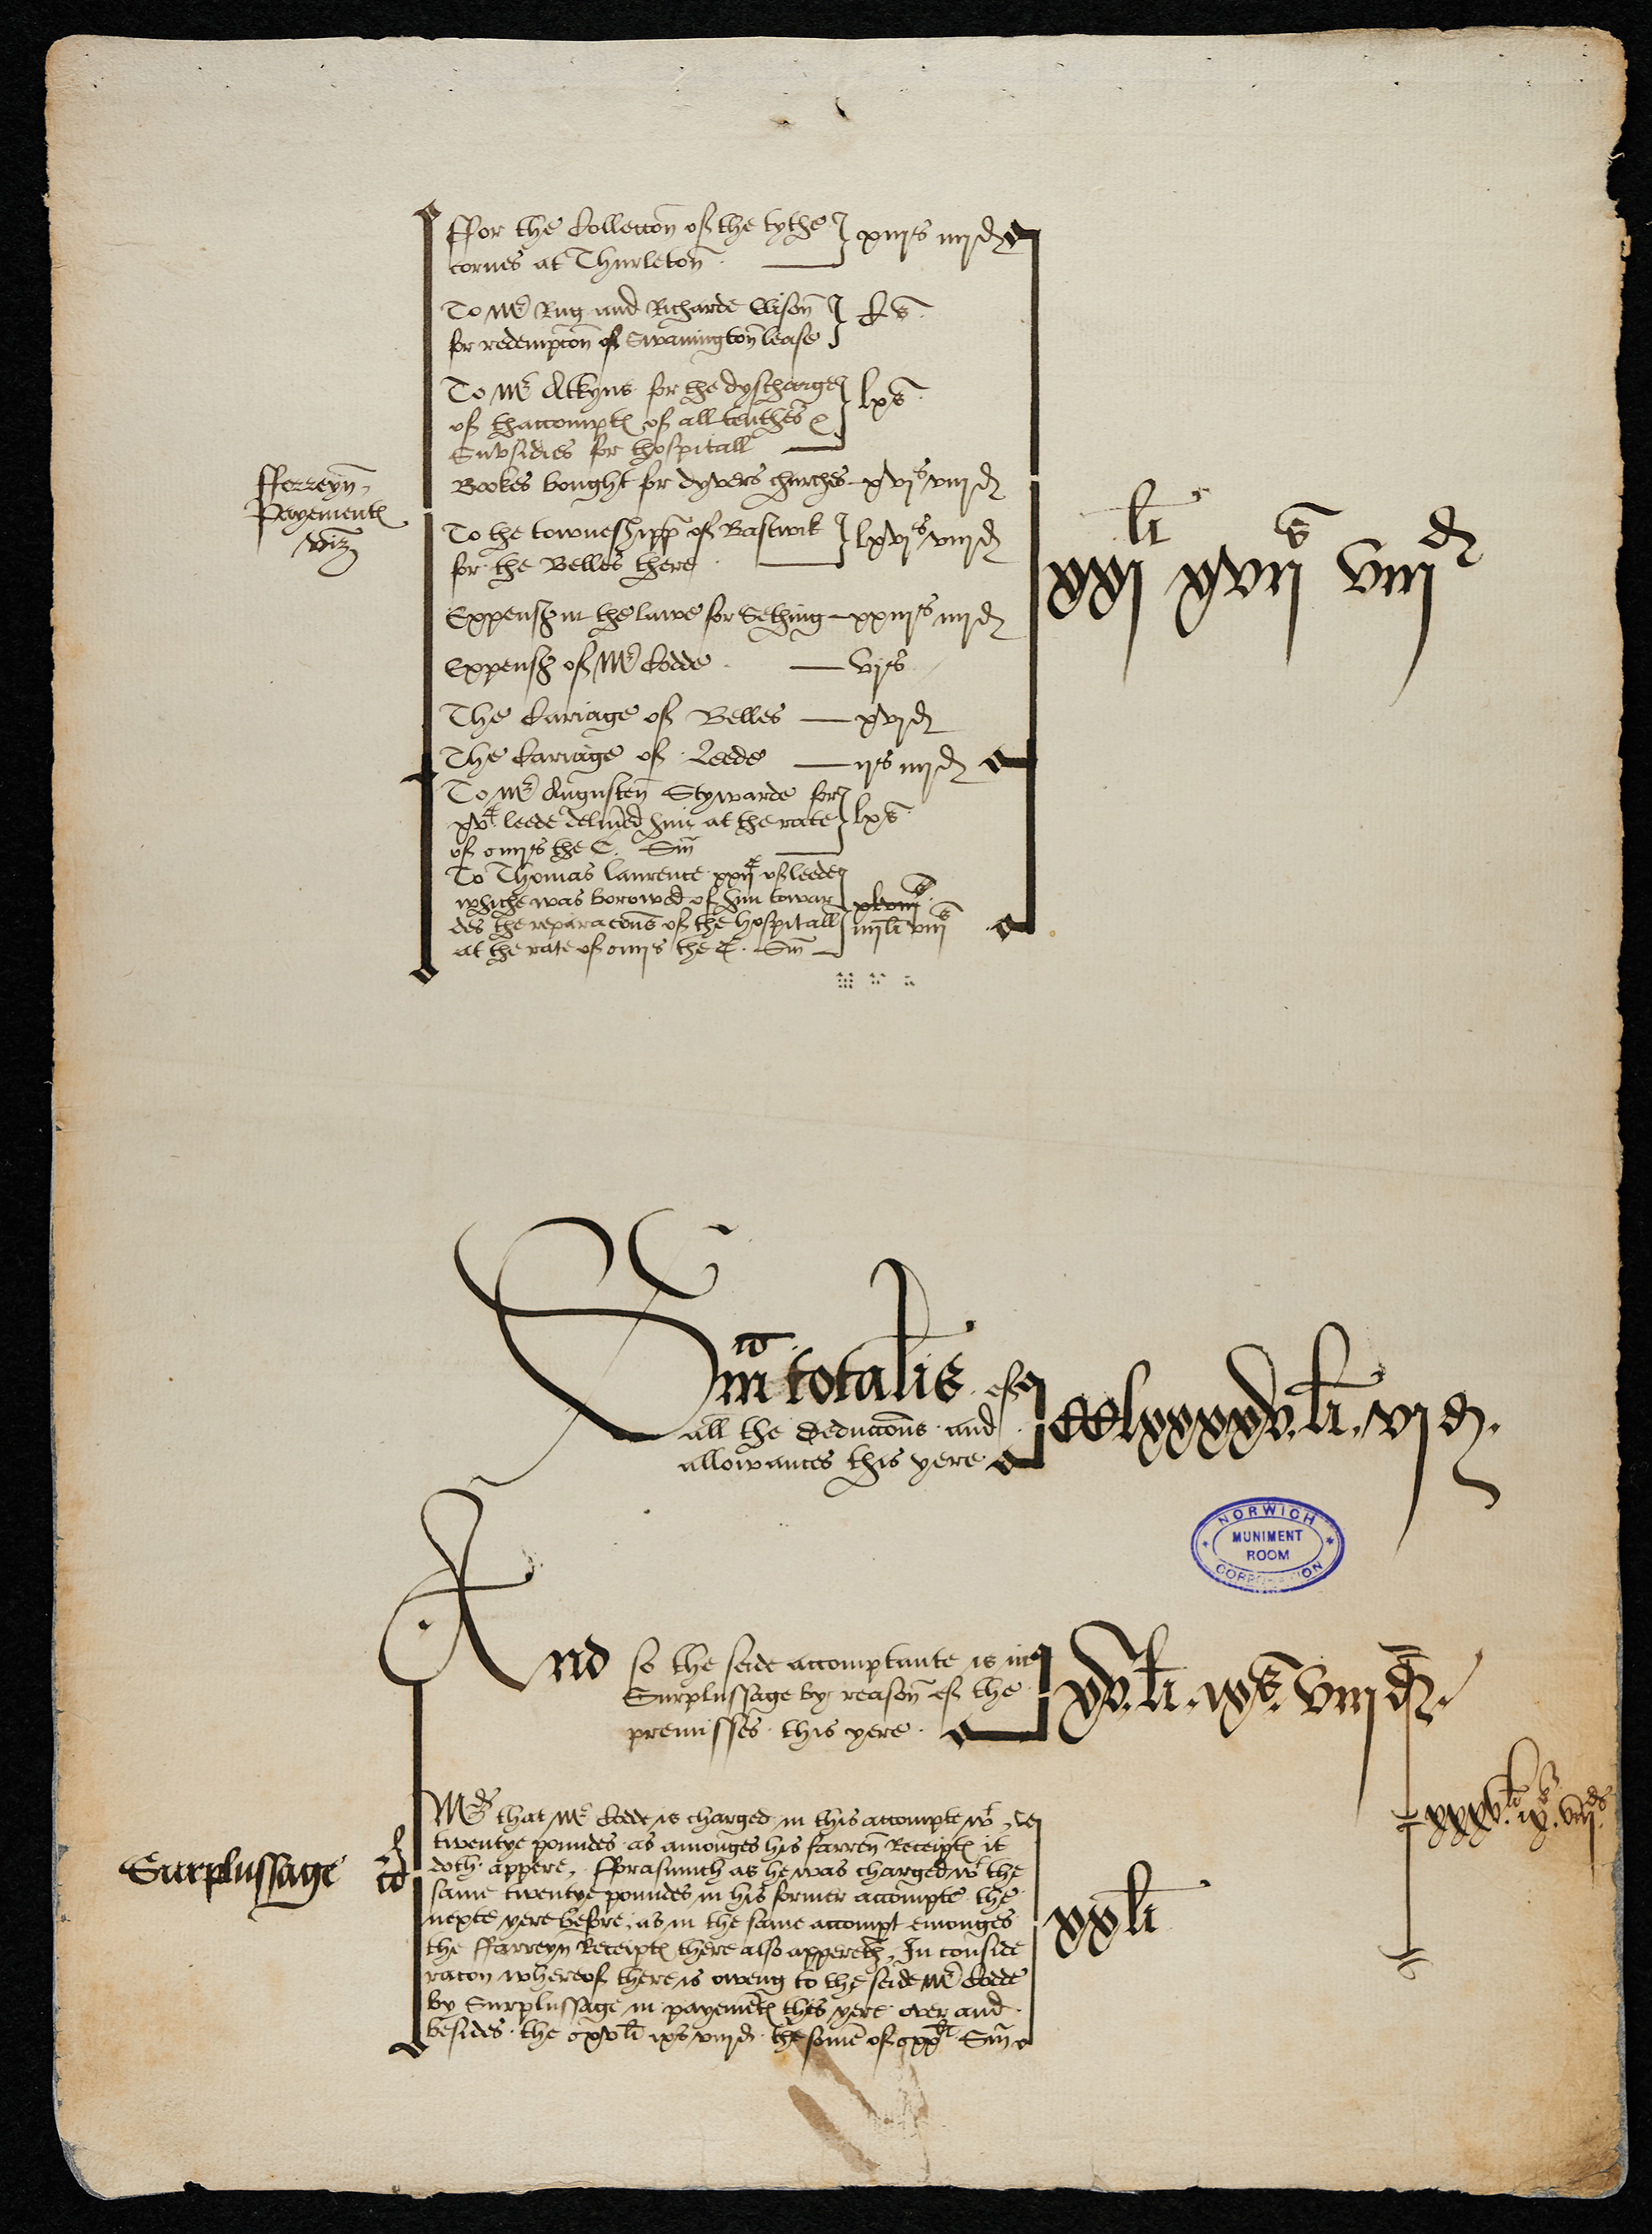 ffor the Collecc̃on of the tythe
cornes at Thurleton̄ xiijs iiijd
To Mr Rug and Richarde Elison̄ Cs
for redempc̃on of Swanington̄ lease
To Mr Atkyns for the dyscharge
of thaccompt of all tenthes &
Subsidies for hospitall lxs
fforreyn̄
Payement
viz
Bookes bought for dyvers churches xvjs viijd
To the towneshipp̄ of Bastwik
for the Belles there lxvjs viijd
xxj li xvij s viij d
Expensz in the lawe for Sething xxiijs iiijd
Expensz of Mr Codde vjs
The Cariage of Belles xvjd
The Cariage of Leede ijs iiijd
To Mr Augusten̄ Stywarde for
xvC leede delin̄ed him at the rate lxs
of iiijs the C. Sm̄
To Thomas laurence xxijC of leede
whiche was borowed of him towar
des the reparac̃ons of the hospitall iiijli viijs
at the rate of iiijs the C. Sm̄
Sm̄a totalis of
all the deducc̃ons and
allowances this yere CClxxxxv li. vj d.
NORWICH
MUNIMENT
ROOM
CORPORATION
And so the seide accomptante is in
Surplussage by reason̄ of the
premisses this yere xv. li. ix s. viij d.
Md that Mr Codde is charged in this accompte wt
twentye poundes as amonges his farren̄ Receipt it
doth appere, fforasmuch as he was charged wt the
Surplussage
same twentye poundes in his former accompte the
nexte yere before, as in the same accompt emonges
the fforreyn̄ Receipt there also appereth, In conside
racon whereof there is oweng to the seide Mr Codde
by Surplussage in payemēt this yere over and
besides the xvli ixs viijd the some of xxli Sm̄
xx li
xxxv li ix s. viij d.